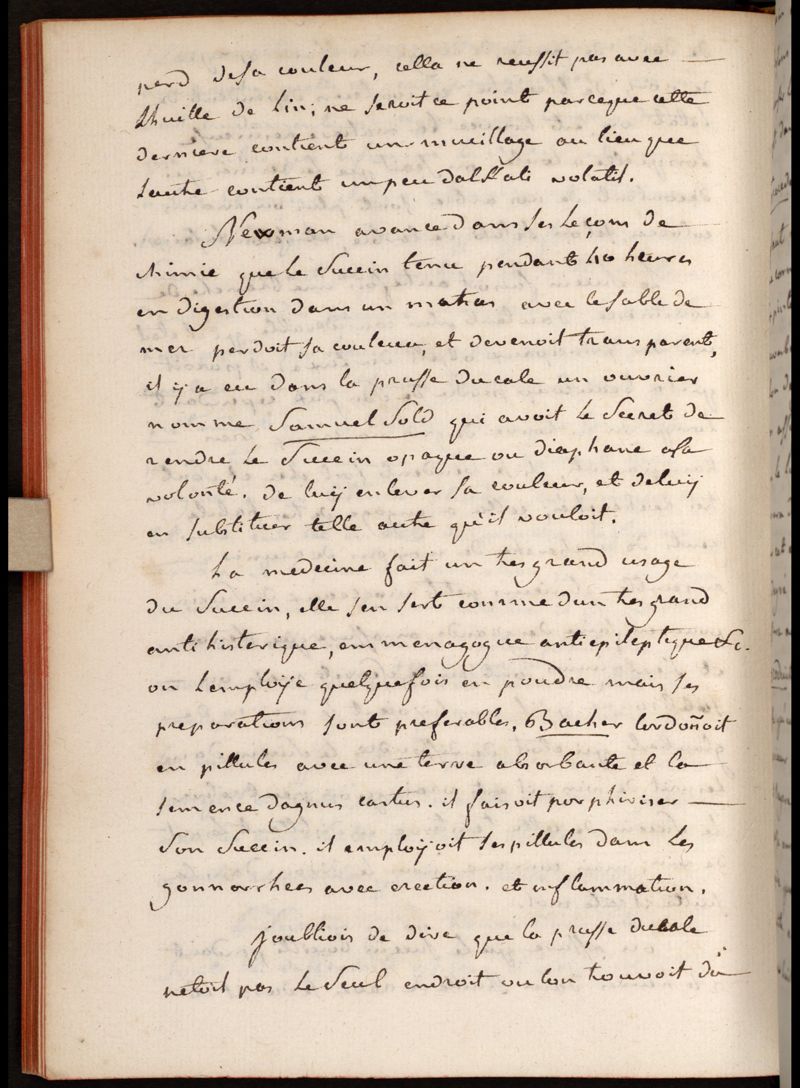 perd desa couleur, cella ne reussit pas avec
Lhuille de Lin; ne seroit ce point parceque cette
derniere contient un mucillage au lieu que
Lautre contient un peu dalkali volatil.
Newman avance dans ses Leçons de
chimie que le Succin tenu pendant 40 heures
en digestion dans un matras avec le sable de
mer perdoit sa couleur, et devenoit transparent,
il y a eu dans la prusse ducale un ouvrier
nomme Samuel Sold qui avoit le Secret de
rendre le Succin opaque ou diaphane asa
volonté. de luy enlever sa couleur, et deluy
en substituer telle autre qu'il vouloit.
La medecine fait un tres grand usage
du Succin, elle sen sert comme dun tres grand
anti histerique, emmenagogue antiepileptique &c.
on Lemploye quelquefois en poudre mais ses
preparations sont preferables. Bacher lordoñoit
en pillules avec une terre absorbante et la
semence dagnus castus. il faisoit porphiriser
Son Succin. il employoit ses pillules dans les
gonnorrhees avec erection. et inflammation.
joubliois de dire que la prusse ducale
netoit pas le Seul endroit ou lon trouvoit du